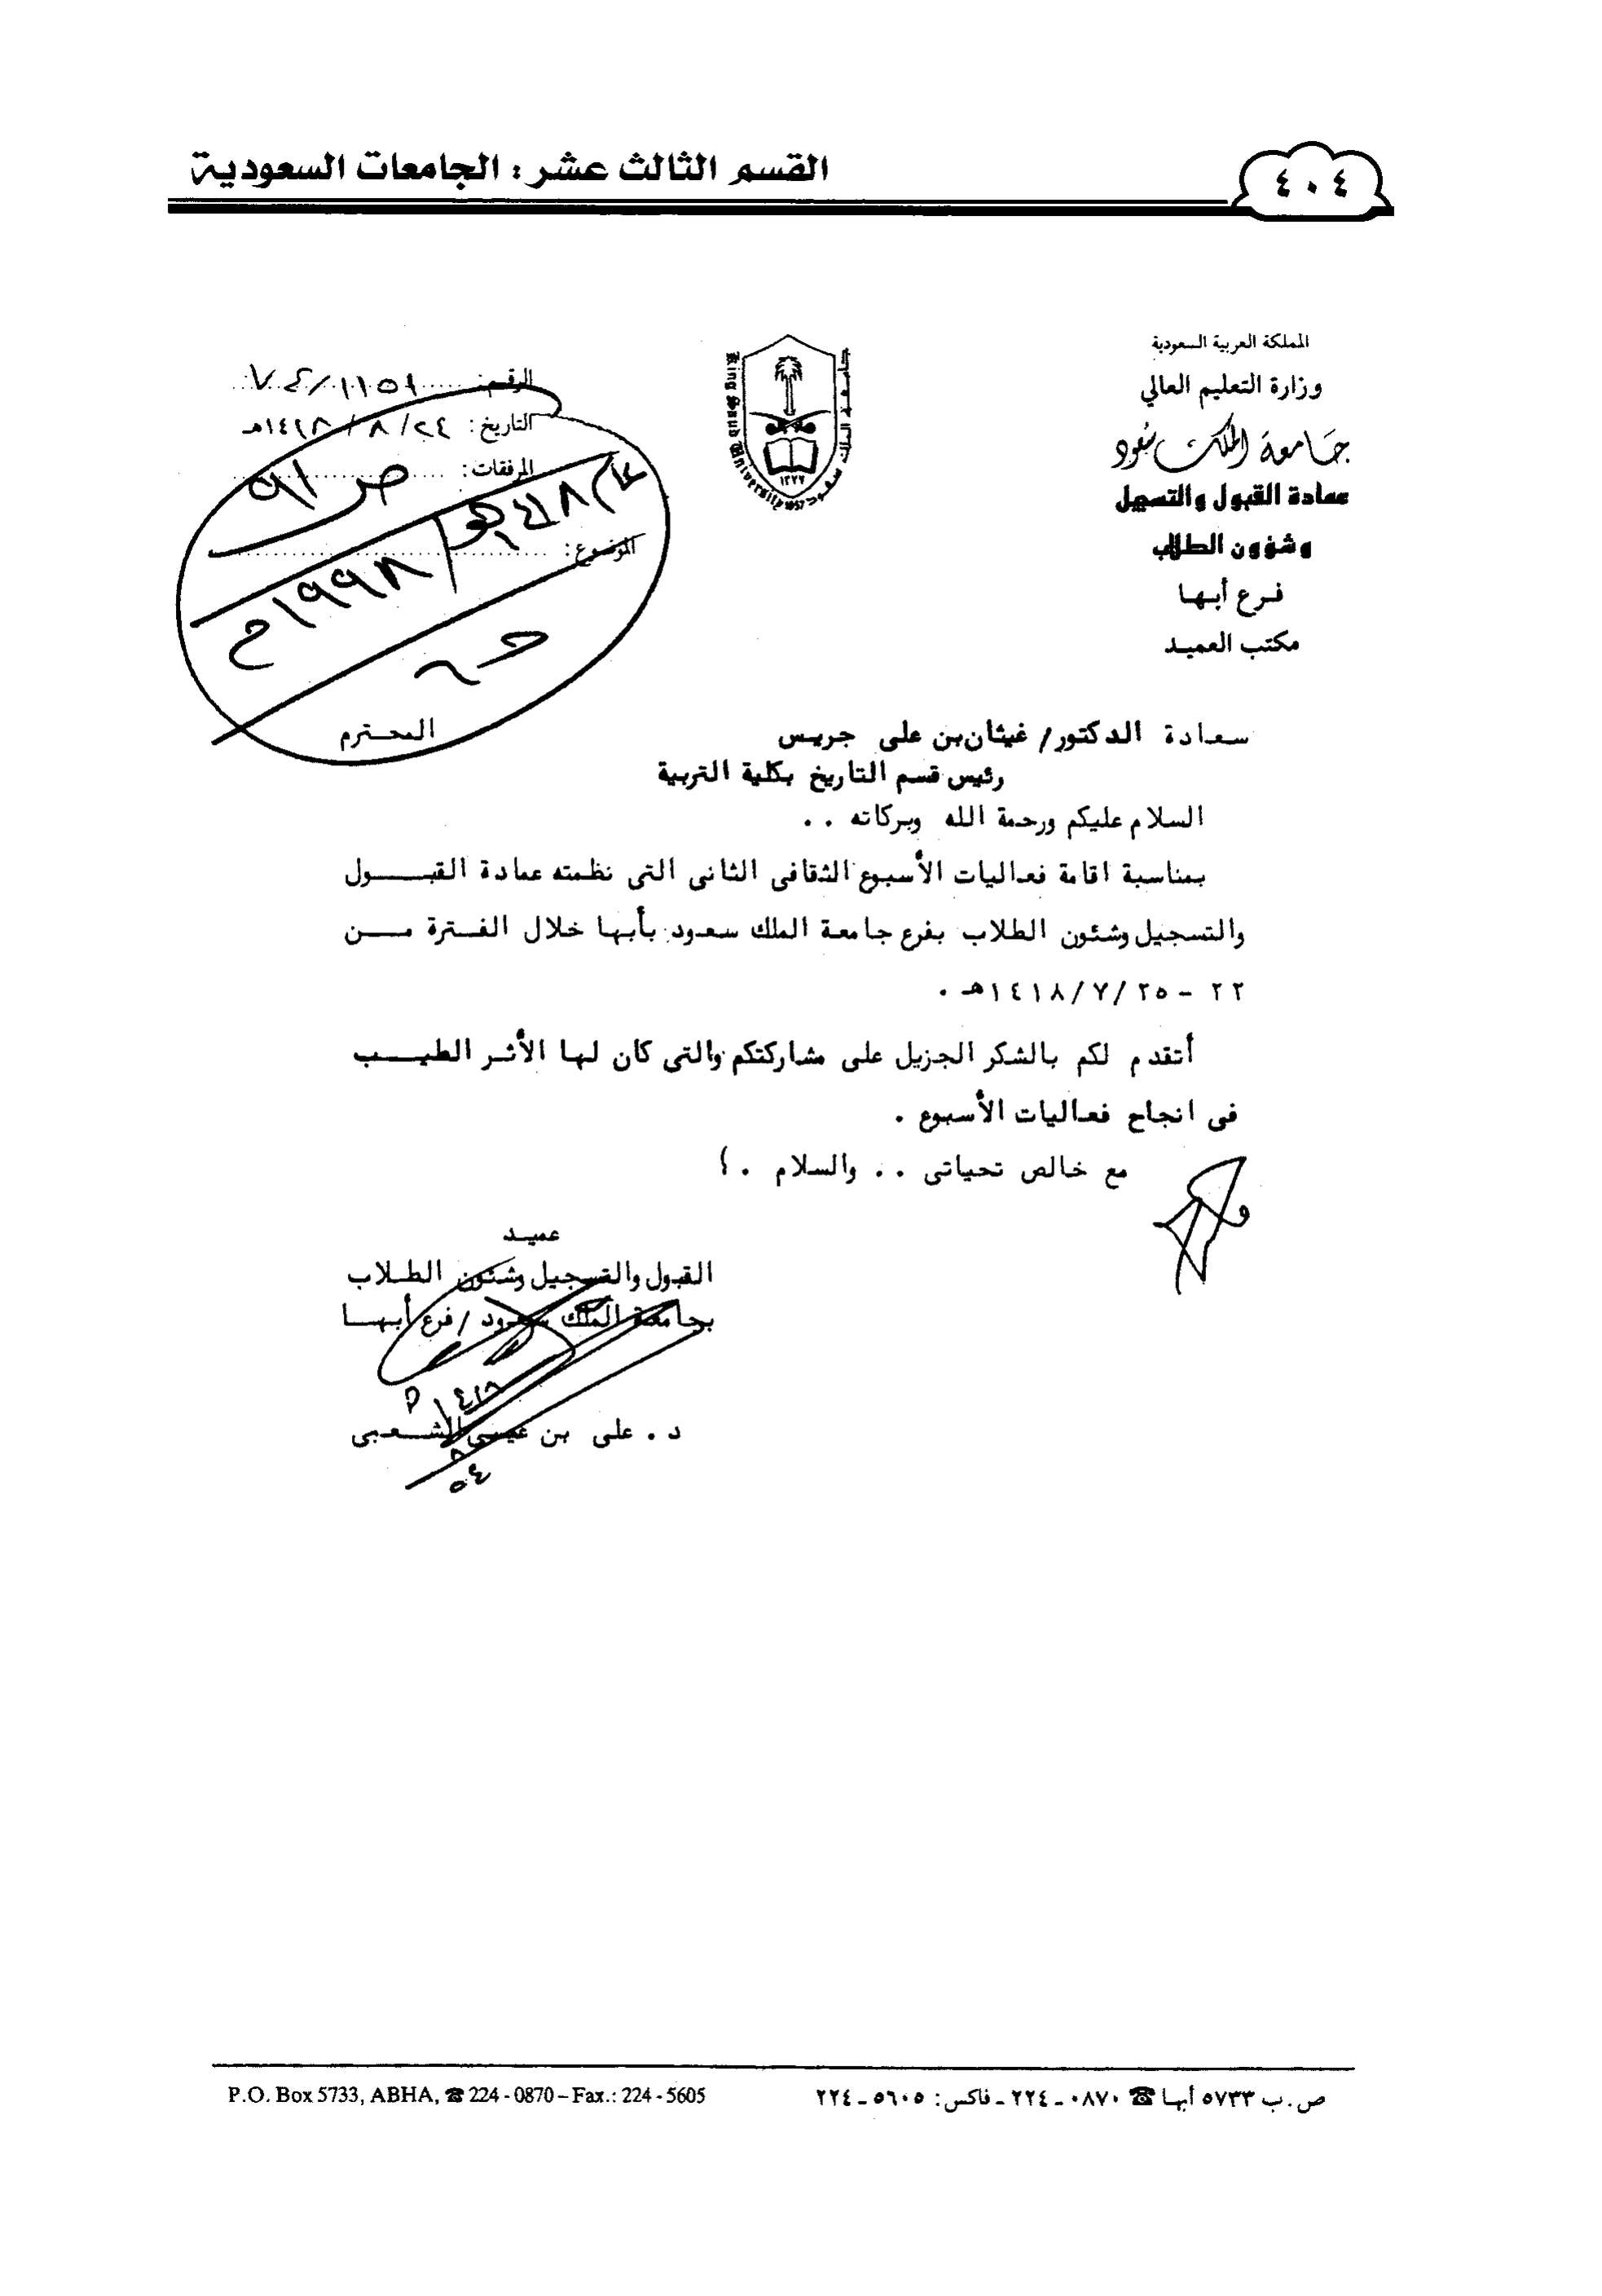 ٤٠٤
القسم الثالث عشر : الجامعات السعودية
المملكة العربية السعودية
وزارة التعليم العالي
جامعة الملك سعود
عمادة القبول والتسجيل
وشؤون الطلاب
فرع أبها
مكتب العميد
جامعة الملك سعود
King Saud University 1957
١٣٧٧
الرقم:
التاريخ: ٢٤/٨/١٤١٨هـ
المرفقات:
الموضوع:
ص ٩١
١٤١٨هـ
١٩٩٨م
سعادة الدكتور/ غيثان بن على جريس المحترم
رئيس قسم التاريخ بكلية التربية
السلام عليكم ورحمة الله وبركاته ..
بمناسبة اقامة فعاليات الأسبوع الثقافى الثانى التى نظمته عمادة القبول
والتسجيل وشئون الطلاب بفرع جامعة الملك سعود بأبها خلال الفترة من
٢٢ - ٢٥/٧/١٤١٨هـ .
أتقدم لكم بالشكر الجزيل على مشاركتكم والتى كان لها الأثر الطيب
فى انجاح فعاليات الأسبوع .
مع خالص تحياتى .. والسلام .؟
عميد
القبول والتسجيل وشئون الطلاب
بجامعة الملك سعود / فرع أبها
د . على بن عيسى الشعبى
ص.ب ٥٧٣٣ أبها ☎ ٠٨٧٠ - ٢٢٤ - فاكس: ٥٦٠٥ - ٢٢٤
P.O. Box 5733, ABHA, ☎ 224 - 0870 – Fax.: 224 - 5605